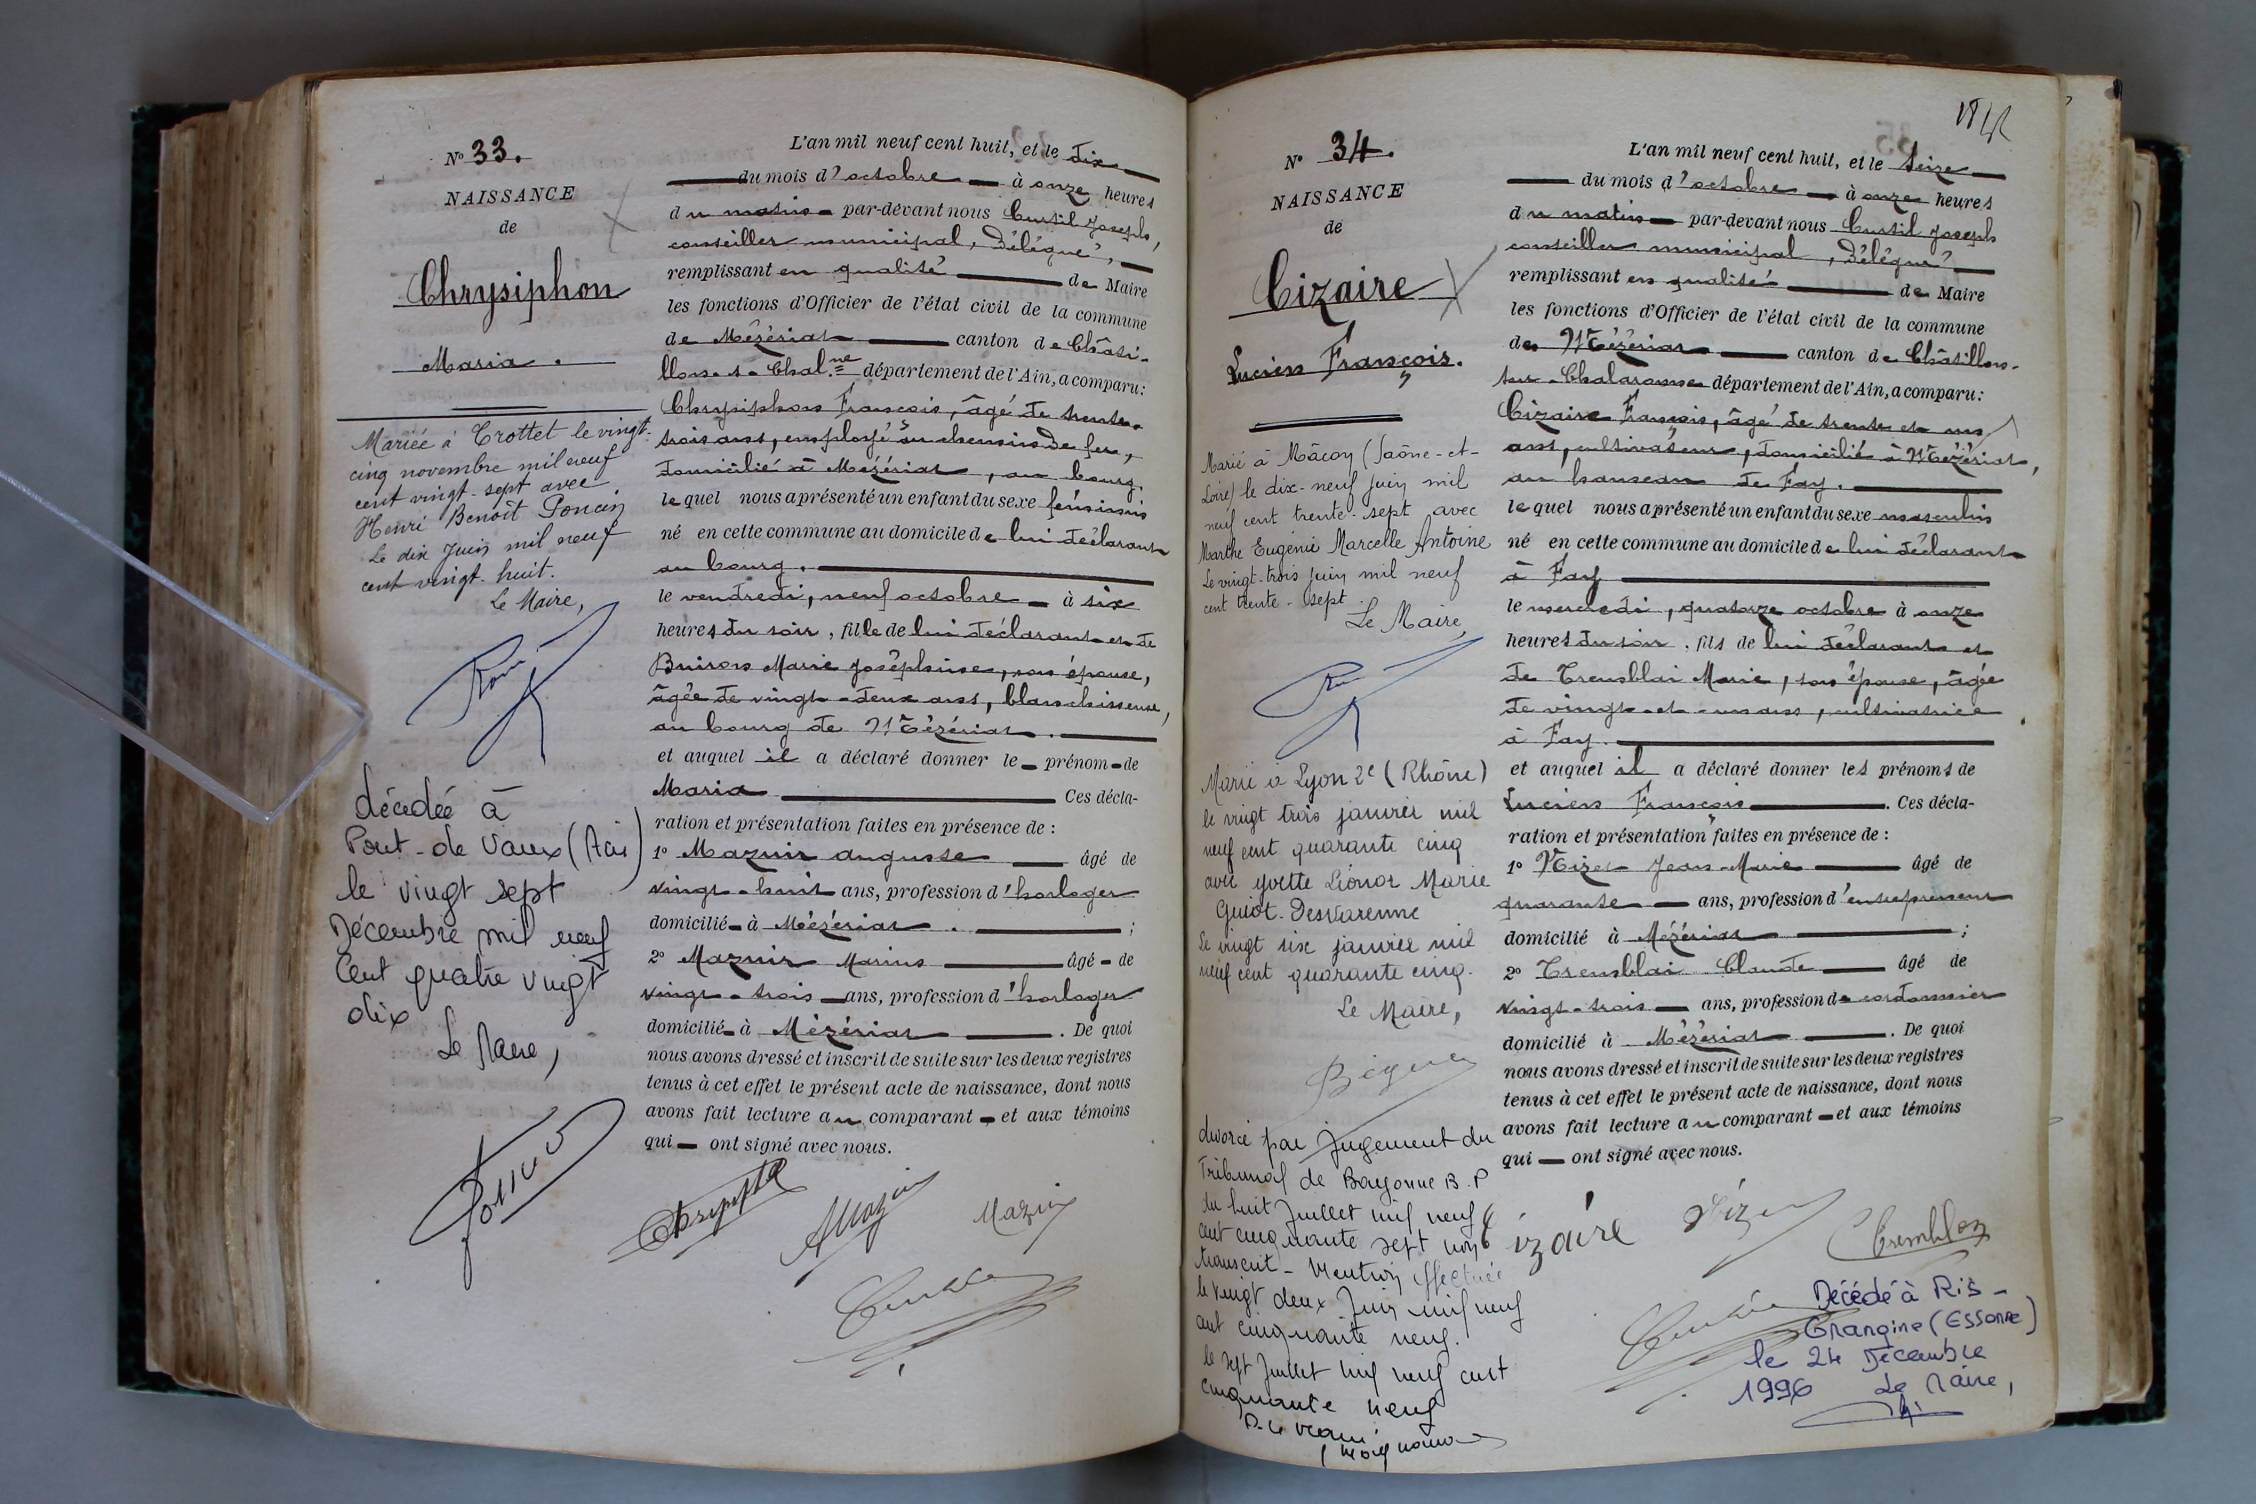 N° 33.
NAISSANCE
de
Chrysiphon
Maria.
Mariée à Crottet le vingt-
cinq novembre mil neuf
cent vingt-sept avec
Henri Benoît Poncin
Le dix Juin mil neuf
cent vingt-huit.
Le Maire,
décédée à
Pont-de Vaux (Ain)
le vingt sept
Décembre mil neuf
Cent quatre vingt
dix
Le Maire,
L'an mil neuf cent huit, et le dix
du mois d'octobre à onze heures
du matin par-devant nous Curtil Joseph,
conseiller municipal, délégué,
remplissant en qualité de Maire
les fonctions d'Officier de l'état civil de la commune
de Mézériat canton de Châti-
llon-s-Chal.ne département de l'Ain, a comparu:
Chrysiphon François, âgé de trente-
trois ans, employé au chemin de fer,
domicilié à Mézériat, au bourg.
lequel nous a présenté un enfant du sexe féminin
né en cette commune au domicile de lui déclarant
au bourg.
le vendredi, neuf octobre à six
heures du soir, fille de lui déclarant et de
Buiron Marie Joséphine, son épouse,
âgée de vingt-deux ans, blanchisseuse,
au bourg de Mézériat.
et auquel il a déclaré donner le prénom de
Maria Ces décla-
ration et présentation faites en présence de :
1° Mazuir Auguste âgé de
vingt-huit ans, profession d'horloger
domicilié à Mézériat. ;
2° Mazuir Marius âgé de
vingt-trois ans, profession d'horloger
domicilié à Mézériat. De quoi
nous avons dressé et inscrit de suite sur les deux registres
tenus à cet effet le présent acte de naissance, dont nous
avons fait lecture au comparant et aux témoins
qui ont signé avec nous.
AMazuir Mazuir
N° 34.
NAISSANCE
de
Cizaire
Lucien François.
Marié à Mâcon (Saône-et-
Loire) le dix-neuf juin mil
neuf cent trente-sept avec
Marthe Eugénie Marcelle Antoine
Le vingt-trois juin mil neuf
cent trente-sept.
Le Maire,
Marié à Lyon 2e (Rhône)
le vingt trois janvier mil
neuf cent quarante cinq
avec Yvette Léonor Marie
Guiot-Desvarenne
Le vingt six janvier mil
neuf cent quarante cinq.
Le Maire,
divorcé par jugement du
Tribunal de Bayonne B.P
du huit Juillet mil neuf
cent cinquante sept non
transcrit - Mention effectuée
le vingt deux Juin mil neuf
cent cinquante neuf.
le sept Juillet mil neuf cent
cinquante neuf
L'an mil neuf cent huit, et le seize
du mois d'octobre à onze heures
du matin par-devant nous Curtil Joseph
conseiller municipal, délégué
remplissant en qualité de Maire
les fonctions d'Officier de l'état civil de la commune
de Mézériat canton de Châtillon-
sur-Chalaronne département de l'Ain, a comparu:
Cizaire François, âgé de trente et un
ans, cultivateur, domicilié à Mézériat,
au hameau de Fay.
lequel nous a présenté un enfant du sexe masculin
né en cette commune au domicile de lui déclarant
à Fay
le mercredi, quatorze octobre à onze
heures du soir. fils de lui déclarant et
de Tremblai Marie, son épouse, âgée
de vingt-et-un ans, cultivatrice
à Fay.
et auquel il a déclaré donner les prénoms de
Lucien François. Ces décla-
ration et présentation faites en présence de :
1° Vizet Jean-Marie âgé de
quarante ans, profession d'entrepreneur
domicilié à Mézériat ;
2° Tremblai Claude âgé de
vingt-trois ans, profession de cordonnier
domicilié à Mézériat. De quoi
nous avons dressé et inscrit de suite sur les deux registres
tenus à cet effet le présent acte de naissance, dont nous
avons fait lecture au comparant et aux témoins
qui ont signé avec nous.
Cizaire Vizet Tremblay
Décédé à Ris-
Orangine (Essonne)
le 24 Décembre
1996 Le Maire,